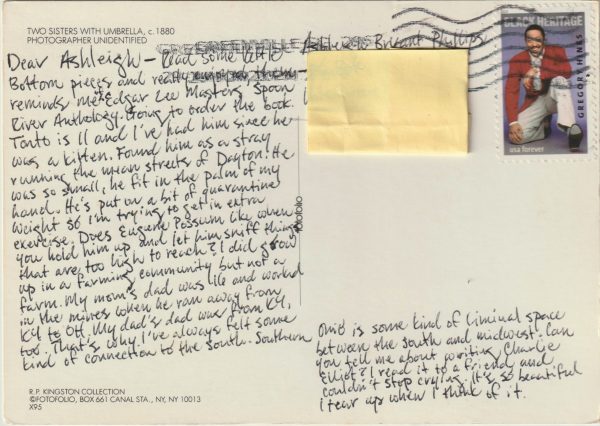 TWO SISTERS WITH UMBRELLA, c. 1880
PHOTOGRAPHER UNIDENTIFIED
GREENVILLE
Ashleigh Bryant Phillips
BLACK HERITAGE
GREGORY HINES
usa forever
Dear Ashleigh - Read some little
Bottom pieces and really enjoy them -
reminds me Edgar Lee Masters' Spoon
River Anthology. Going to order the book.
Tonto is 11 and I've had him since he
was a kitten. Found him as a stray
running the mean streets of Dayton! He
was so small, he fit in the palm of my
hand. He's put on a bit of quarantine
weight so I'm trying to get in extra
exercise. Does Eugene Possum like when
you hold him up and let him sniff things
that are too high to reach? I did grow
up in a farming community but not a
farm. My mom's dad was like and worked
in the mines when he ran away from
KY to OH. My dad's dad was from KY,
too. That's why I've always felt some
kind of connection to the South. Southern
Ohio is some kind of liminal space
between the South and midwest. Can
you tell me about writing Charlie
Elliot? I read it to a friend and
couldn't stop crying. It's so beautiful
I tear up when I think of it.
Fotofolio
R.P. KINGSTON COLLECTION
©FOTOFOLIO, BOX 661 CANAL STA., NY, NY 10013
X95